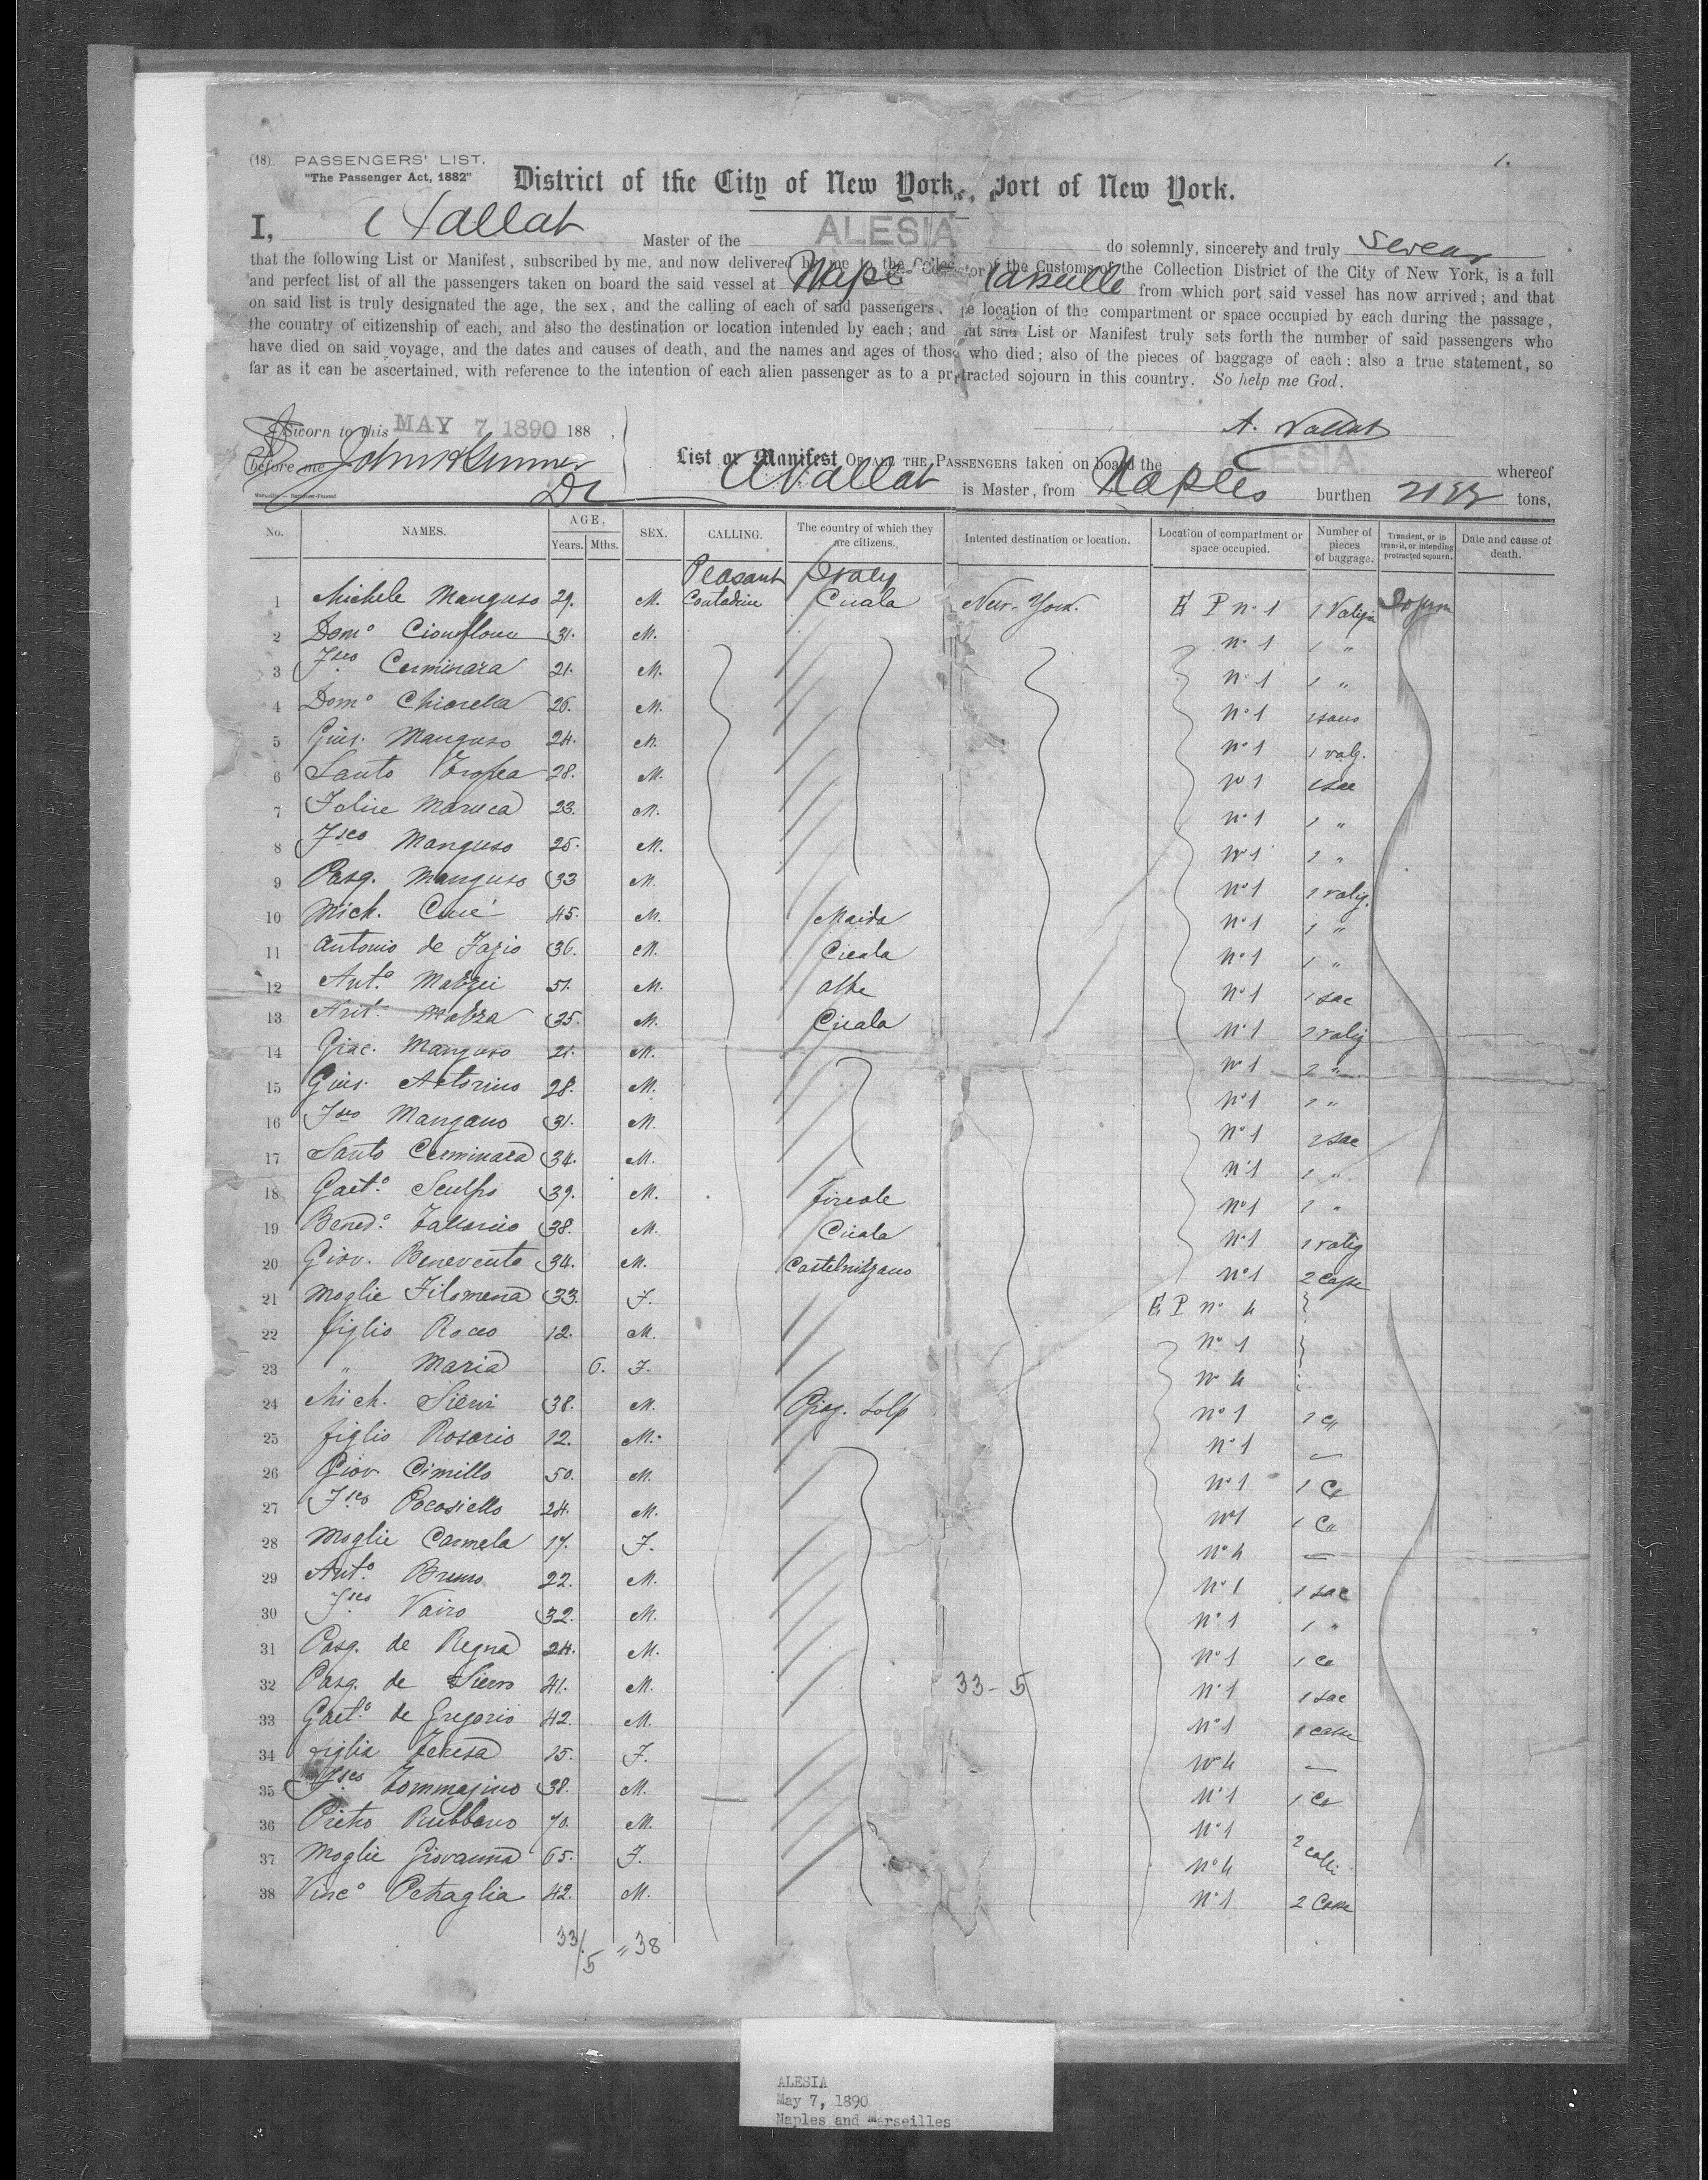 1.
(18). PASSENGERS' LIST.
"The Passenger Act, 1882"
District of the City of New York, Port of New York.
I, A Vallat Master of the ALESIA do solemnly, sincerely and truly swear
that the following List or Manifest, subscribed by me, and now delivered by me to the Collector of the Customs of the Collection District of the City of New York, is a full
and perfect list of all the passengers taken on board the said vessel at Marseille from which port said vessel has now arrived; and that
on said list is truly designated the age, the sex, and the calling of each of said passengers, location of the compartment or space occupied by each during the passage,
the country of citizenship of each, and also the destination or location intended by each; and that said List or Manifest truly sets forth the number of said passengers who
have died on said voyage, and the dates and causes of death, and the names and ages of those who died; also of the pieces of baggage of each: also a true statement, so
far as it can be ascertained, with reference to the intention of each alien passenger as to a protracted sojourn in this country. So help me God.
Sworn to this MAY 7 1890 188 A. Vallat
before me
List or Manifest OF ALL THE PASSENGERS taken on board the ALESIA. whereof
A Vallat is Master, from Naples burthen tons,
No. NAMES. AGE. Years. Mths. SEX. CALLING. The country of which they are citizens. Intented destination or location. Location of compartment or space occupied. Number of pieces of baggage. Transient, or in transit, or intending protracted sojourn. Date and cause of death.
Peasant Italy
1 Michele Manguso 29. M. Contadine Cicala New-York. E P nº 1 1 Valigia
2 Domº 31. M. nº 1 1 "
3 Fsco Cerminara 21. M. nº 1 1 "
4 Domº Chiarella 26. M. nº 1
5 Gius. Manguso 24. M. nº 1 1 valg.
6 Santo Tropea 28. M. nº 1 1 sac
7 Felice Maruca 23. M. nº 1 1 "
8 Fsco Manguso 25. M. nº 1 1 "
9 Pasq. Manguso 33 M. nº 1 1 valig.
10 Mich. 45. M. Maida nº 1 1 "
11 Antonio de Fazio 36. M. Cicala nº 1 1 "
12 Antº 51. M. nº 1 1 sac
13 Antº 35. M. Cicala nº 1 1 valig
14 Giac. Manguso 21. M. nº 1 1 "
15 Gius. 28. M. nº 1 1 "
16 Fsco Mangano 31. M. nº 1 1 sac
17 Santo Cerminara 34. M. nº 1 1 "
18 Gaetº 39. M. nº 1 1 "
19 Benedº 38. M. Cicala nº 1 1 valig
20 Giov. Benevento 34. M. nº 1 2 casse
21 Moglie Filomena 33. F. E P nº 4
22 figlio Rocco 12. M. nº 1
23 " Maria 6. F. nº 4
24 Mich. Sieni 38. M. nº 1
25 figlio Rosario 12. M. nº 1 —
26 Giov Cimillo 50. M. nº 1
27 Fsco 24. M. nº 1
28 Moglie Carmela 17. F. nº 4 —
29 Antº Bruno 22. M. nº 1 1 sac
30 Fsco Vairo 32. M. nº 1 1 "
31 Pasq. de Regna 24. M. nº 1
32 Pasq. de Siervo 41. M. 33-5 nº 1 1 sac
33 Gaetº de Gregorio 42. M. nº 1 1 casse
34 figlia Teresa 15. F. nº 4 —
35 Fsco Tommasino 38. M. nº 1
36 Pietro 70. M. nº 1
37 Moglie Giovanna 65. F. nº 4 2 colli
38 Vincº Petraglia 42. M. nº 1 2 Casse
33/5 " 38
ALESIA
May 7, 1890
Naples and Marseilles